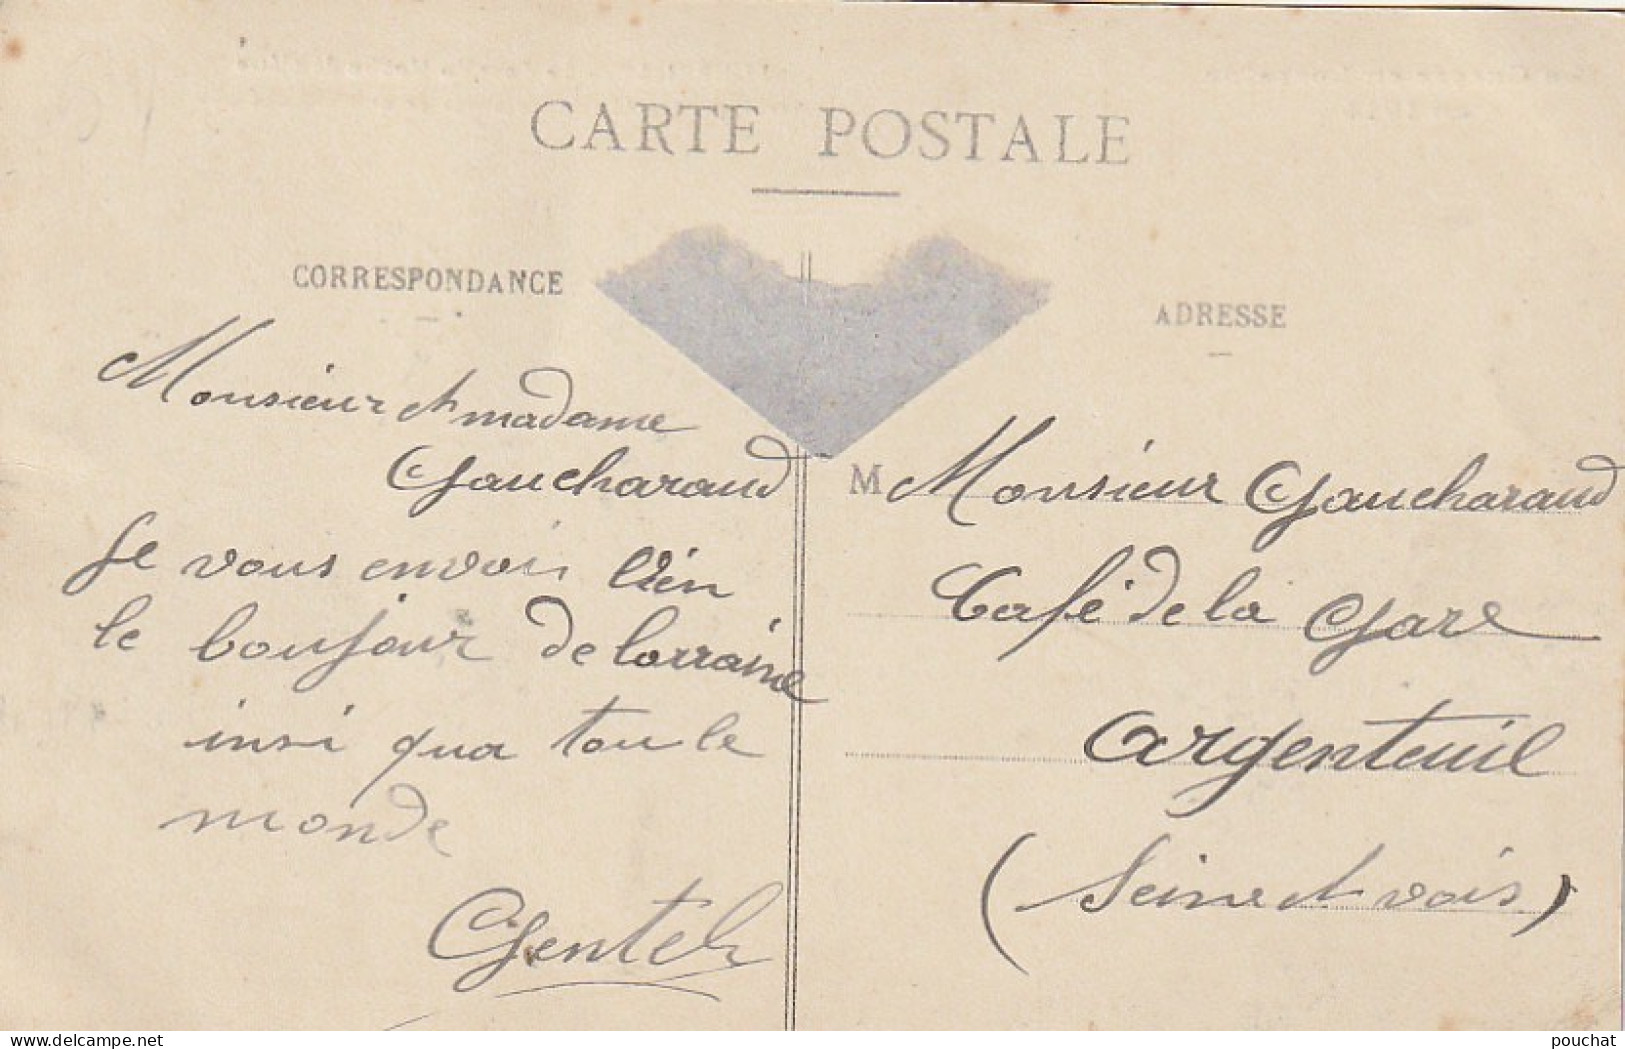 CARTE POSTALE
CORRESPONDANCE
ADRESSE
Monsieur et madame
Gaucharaud
Je vous envoi bien
le bonjour de lorraine
insi qua tou le
monde
Gentel
M Monsieur Gaucharaud
Café de la Gare
Argenteuil
(Seine et vois)
delcampe.net
pouchat